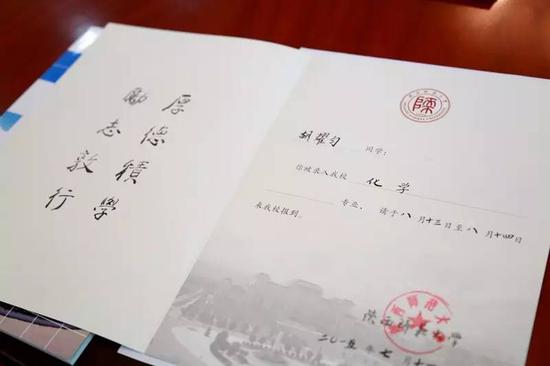 厚德積學
勵志敦行
陳
胡曜匀 同学:
你被录入我校 化学
专业,请于八月十三日至八月十四日
来我校报到。
陕西师范大学
二〇一五年七月十